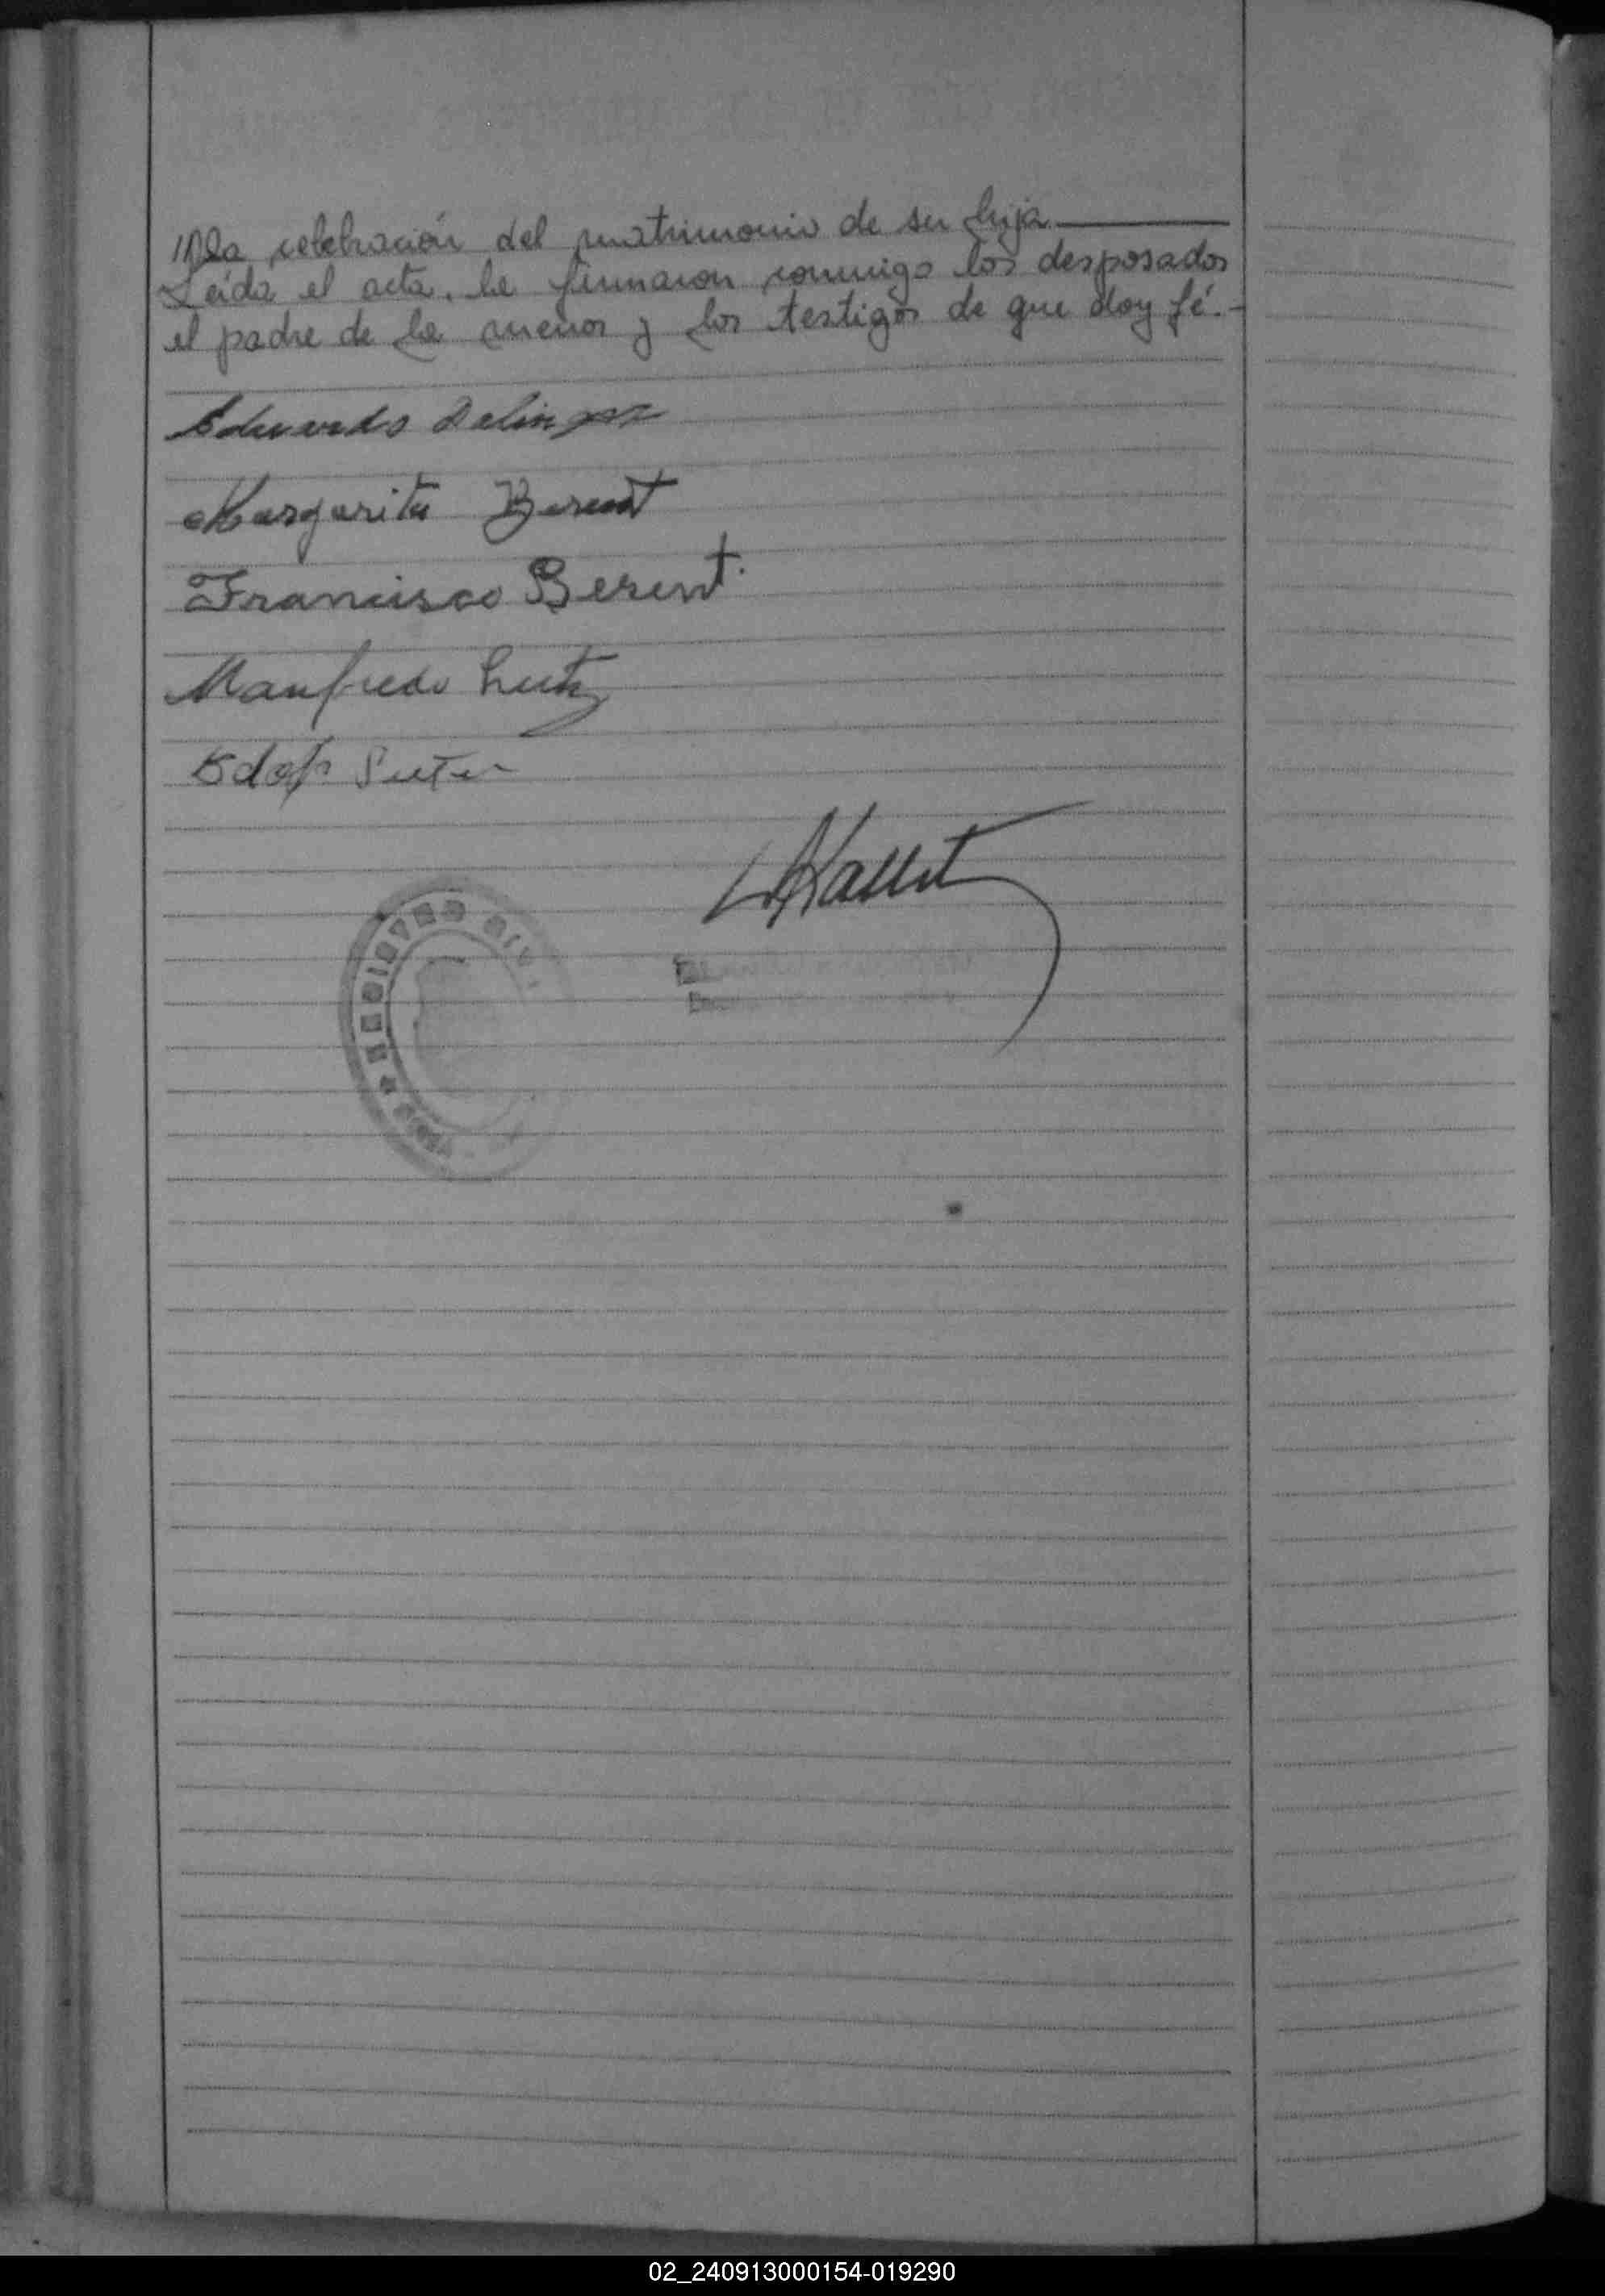 ///la celebración del matrimonio de su hija
Leída el acta, la firmaron conmigo los desposados
el padre de la menor y los testigos de que doy fé.-
Eduardo
Margarita Berent
Francisco Berent.
Manfredo
REGISTRO CIVIL
02_240913000154-019290